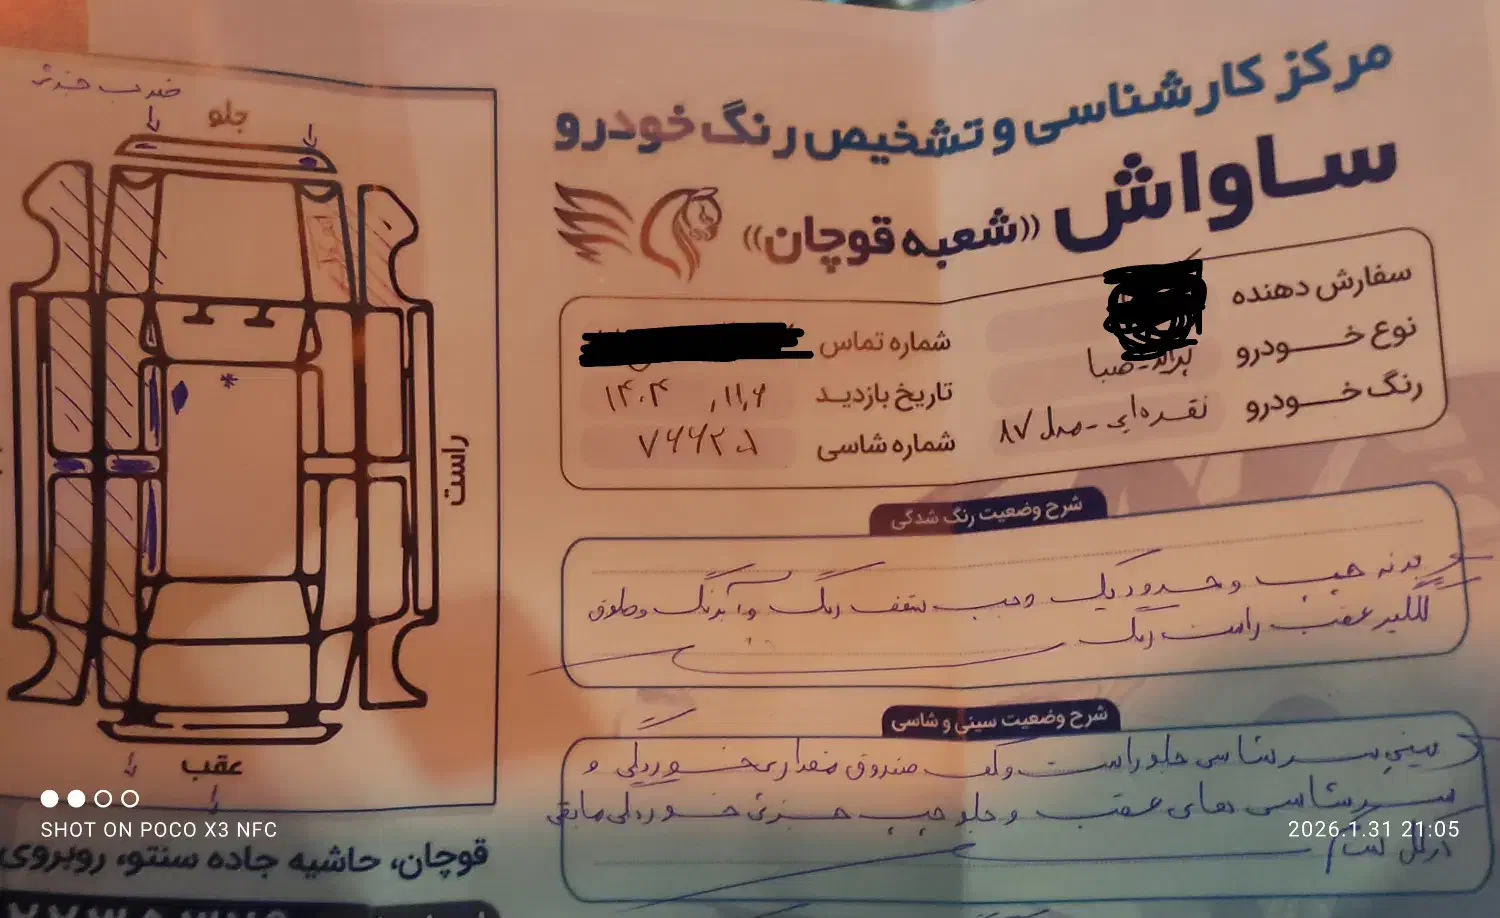 مرکز کارشناسی و تشخیص رنگ خودرو
ساواش «شعبه قوچان»
سفارش دهنده
نوع خــــودرو پراید صبا
رنگ خــودرو نقره‌ای - مدل ۸۷
شماره تماس
تاریخ بازدید ۱۴۰۴ , ۱۱,۶
شماره شاسی
شرح وضعیت رنگ شدگی
بدنه چپ و حدود یک وجب سقف رنگ و آبرنگ و
گلگیر عقب راست رنگ
شرح وضعیت سینی و شاسی
سینی سرشاسی جلو راست و کف صندوق مقداری خوردگی و
سرشاسی های عقب و جلو چپ جزئی خوردگی مابقی
ضرب جزئی
جلو
راست
عقب
قوچان، حاشیه جاده سنتو، روبروی
SHOT ON POCO X3 NFC
2026.1.31 21:05